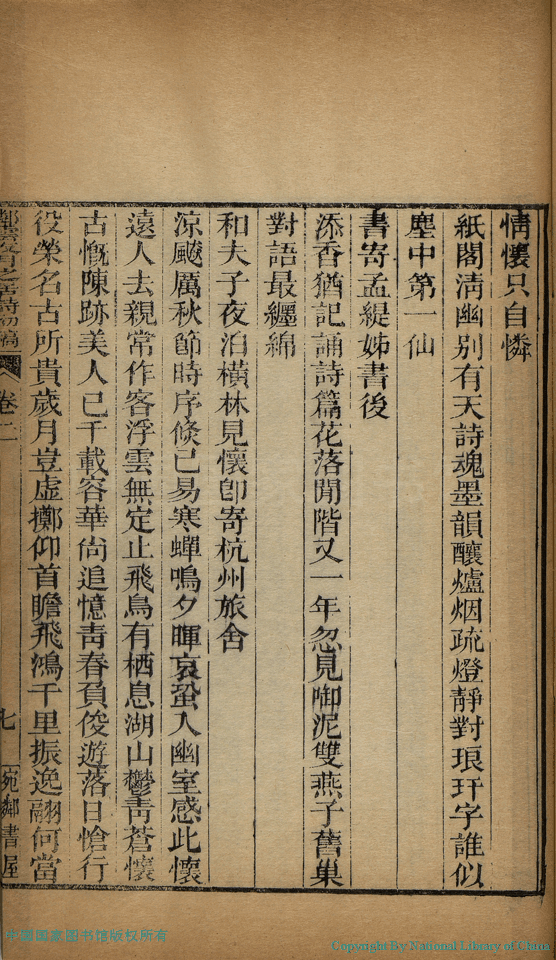 情懷只自憐
紙閣清幽別有天詩魂墨韻釀爐烟疏燈靜對琅玕字誰似
塵中第一仙
書寄孟緹姊書後
添香猶記誦詩篇花落閒階又一年忽見啣泥雙燕子舊巢
對語最纏綿
和夫子夜泊橫林見懷卽寄杭州旅舍
涼颸厲秋節時序倏已易寒蟬鳴夕暉哀蛩入幽室感此懷
遠人去親常作客浮雲無定止飛鳥有栖息湖山鬱青蒼懷
古慨陳跡美人已千載容華尚追憶青春負俊遊落日愴行
役榮名古所貴歲月豈虛擲仰首瞻飛鴻千里振逸翮何當
詩初稿
卷二
七
宛鄰書屋
中國國家图书馆版权所有
Copyright By National Library of China